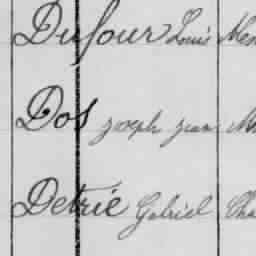 Dufour Louis Me
Dos joseph jean M
Detrié Gabriel Cha